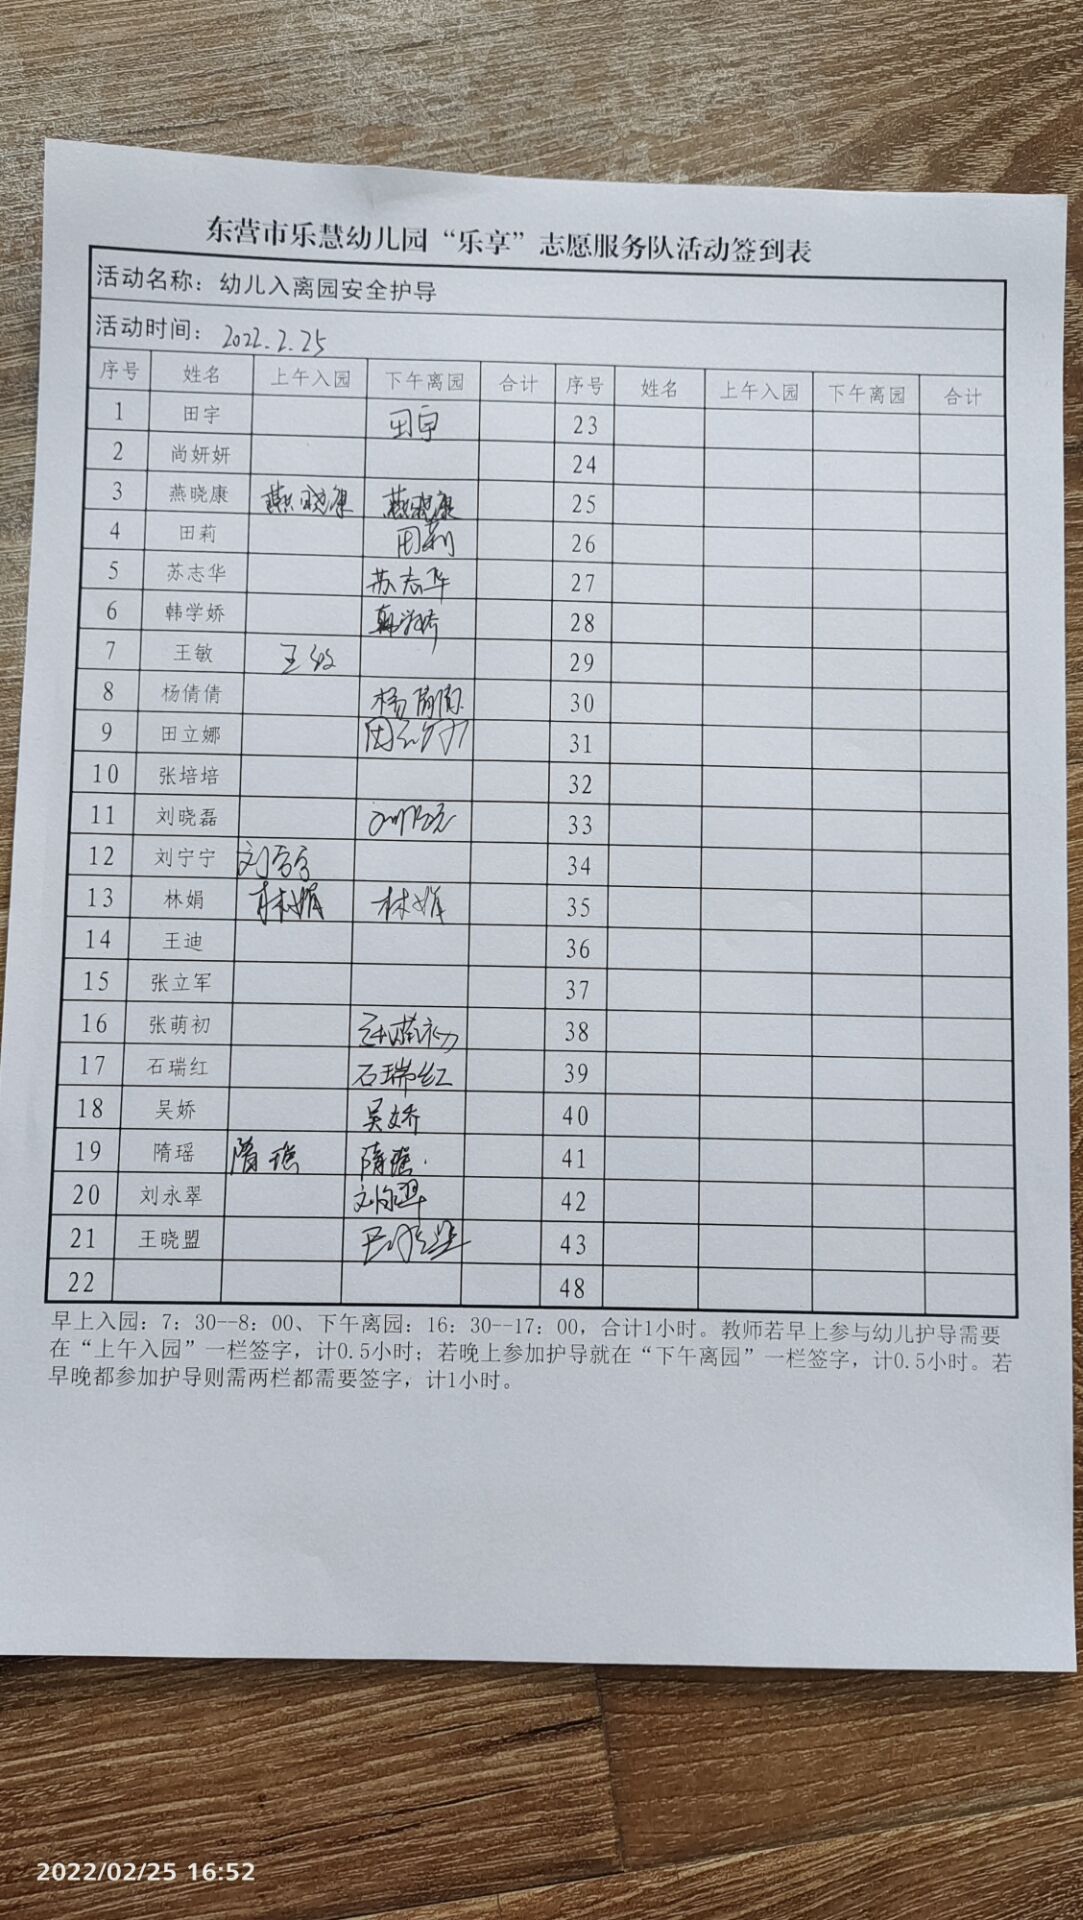 东营市乐慧幼儿园“乐享”志愿服务队活动签到表
活动名称：幼儿入离园安全护导
活动时间：2022.2.25
序号 姓名 上午入园 下午离园 合计 序号 姓名 上午入园 下午离园 合计
1 田宇 田宇 23
2 尚妍妍 24
3 燕晓康 燕晓康 燕晓康 25
4 田莉 田莉 26
5 苏志华 苏志华 27
6 韩学娇 韩学娇 28
7 王敏 王敏 29
8 杨倩倩 杨倩倩 30
9 田立娜 田立娜 31
10 张培培 32
11 刘晓磊 33
12 刘宁宁 刘宁宁 34
13 林娟 林娟 林娟 35
14 王迪 36
15 张立军 37
16 张萌初 张萌初 38
17 石瑞红 石瑞红 39
18 吴娇 吴娇 40
19 隋瑶 隋瑶 隋瑶 41
20 刘永翠 刘永翠 42
21 王晓盟 王晓盟 43
22 48
早上入园：7：30--8：00、下午离园：16：30--17：00，合计1小时。教师若早上参与幼儿护导需要
在“上午入园”一栏签字，计0.5小时；若晚上参加护导就在“下午离园”一栏签字，计0.5小时。若
早晚都参加护导则需两栏都需要签字，计1小时。
2022/02/25 16:52